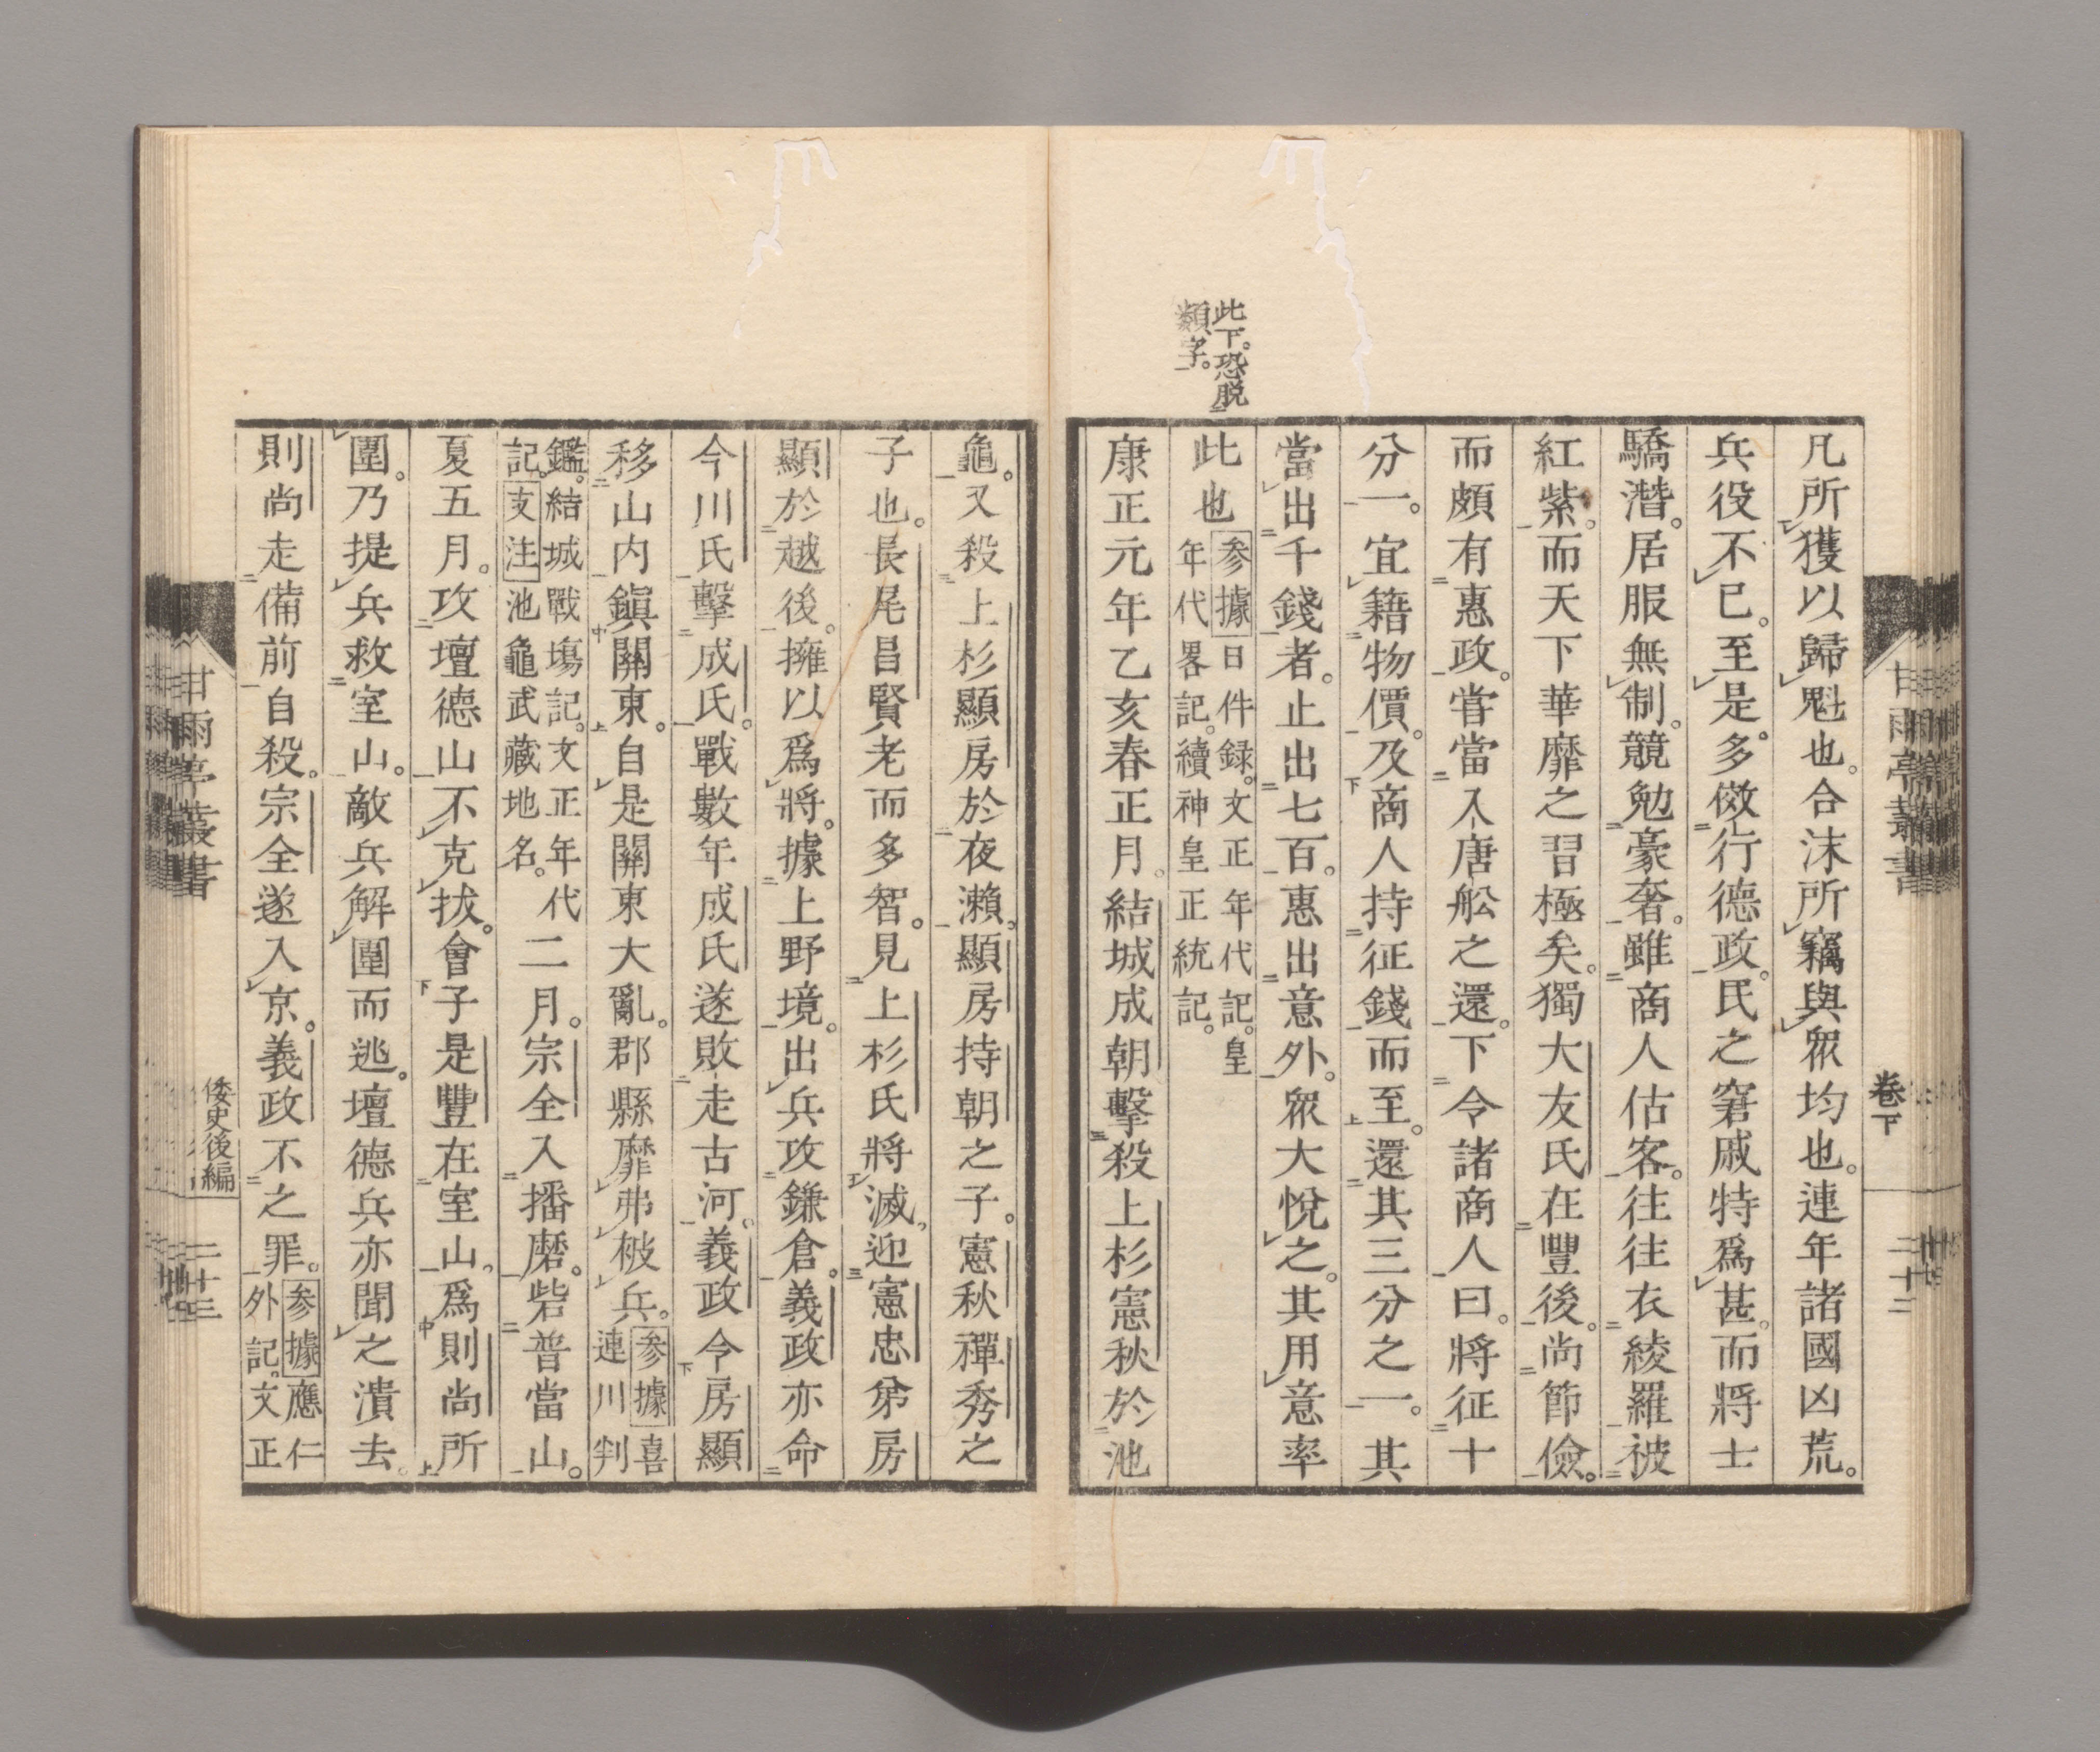 甘雨亭叢書
卷下
二十二
此下恐脱
類字
凡所獲以歸魁也。合沫所竊與衆均也。連年諸國凶荒。
兵役不已。至是多傚行德政。民之窘戚特爲甚。而將士
驕潛。居服無制。競勉豪奢。雖商人估客。往往衣綾羅被
紅紫。而天下華靡之習極矣。獨大友氏在豐後。尚節儉。
而頗有惠政。嘗當入唐舩之還。下令諸商人曰。將征十
分一。宜籍物價。及商人持征錢而至。還其三分之一。其
當出千錢者。止出七百。惠出意外。衆大悅之。其用意率
此也 參據日件録。文正年代記。皇
年代畧記。續神皇正統記。
康正元年乙亥春正月。結城成朝擊殺上杉憲秋於池
龜。又殺上杉顯房於夜瀬。顯房持朝之子。憲秋禪秀之
子也。長尾昌賢老而多智。見上杉氏將滅。迎憲忠弟房
顯於越後。擁以爲將。據上野境。出兵攻鎌倉。義政亦命
今川氏擊成氏。戰數年成氏遂敗走古河。義政令房顯
移山内鎭關東。自是關東大亂。郡縣靡弗被兵。參據喜
連川判
鑑。結城戰塲記。文正年代
記。支注池龜武藏地名。
二月。宗全入播磨。砦普當山。
夏五月。攻壇德山不克拔。會子是豐在室山。爲則尚所
圍。乃提兵救室山。敵兵解圍而逃。壇德兵亦聞之潰去。
則尚走備前自殺。宗全遂入京。義政不之罪。參據應仁
外記。文正
甘雨亭叢書
倭史後編
二十三